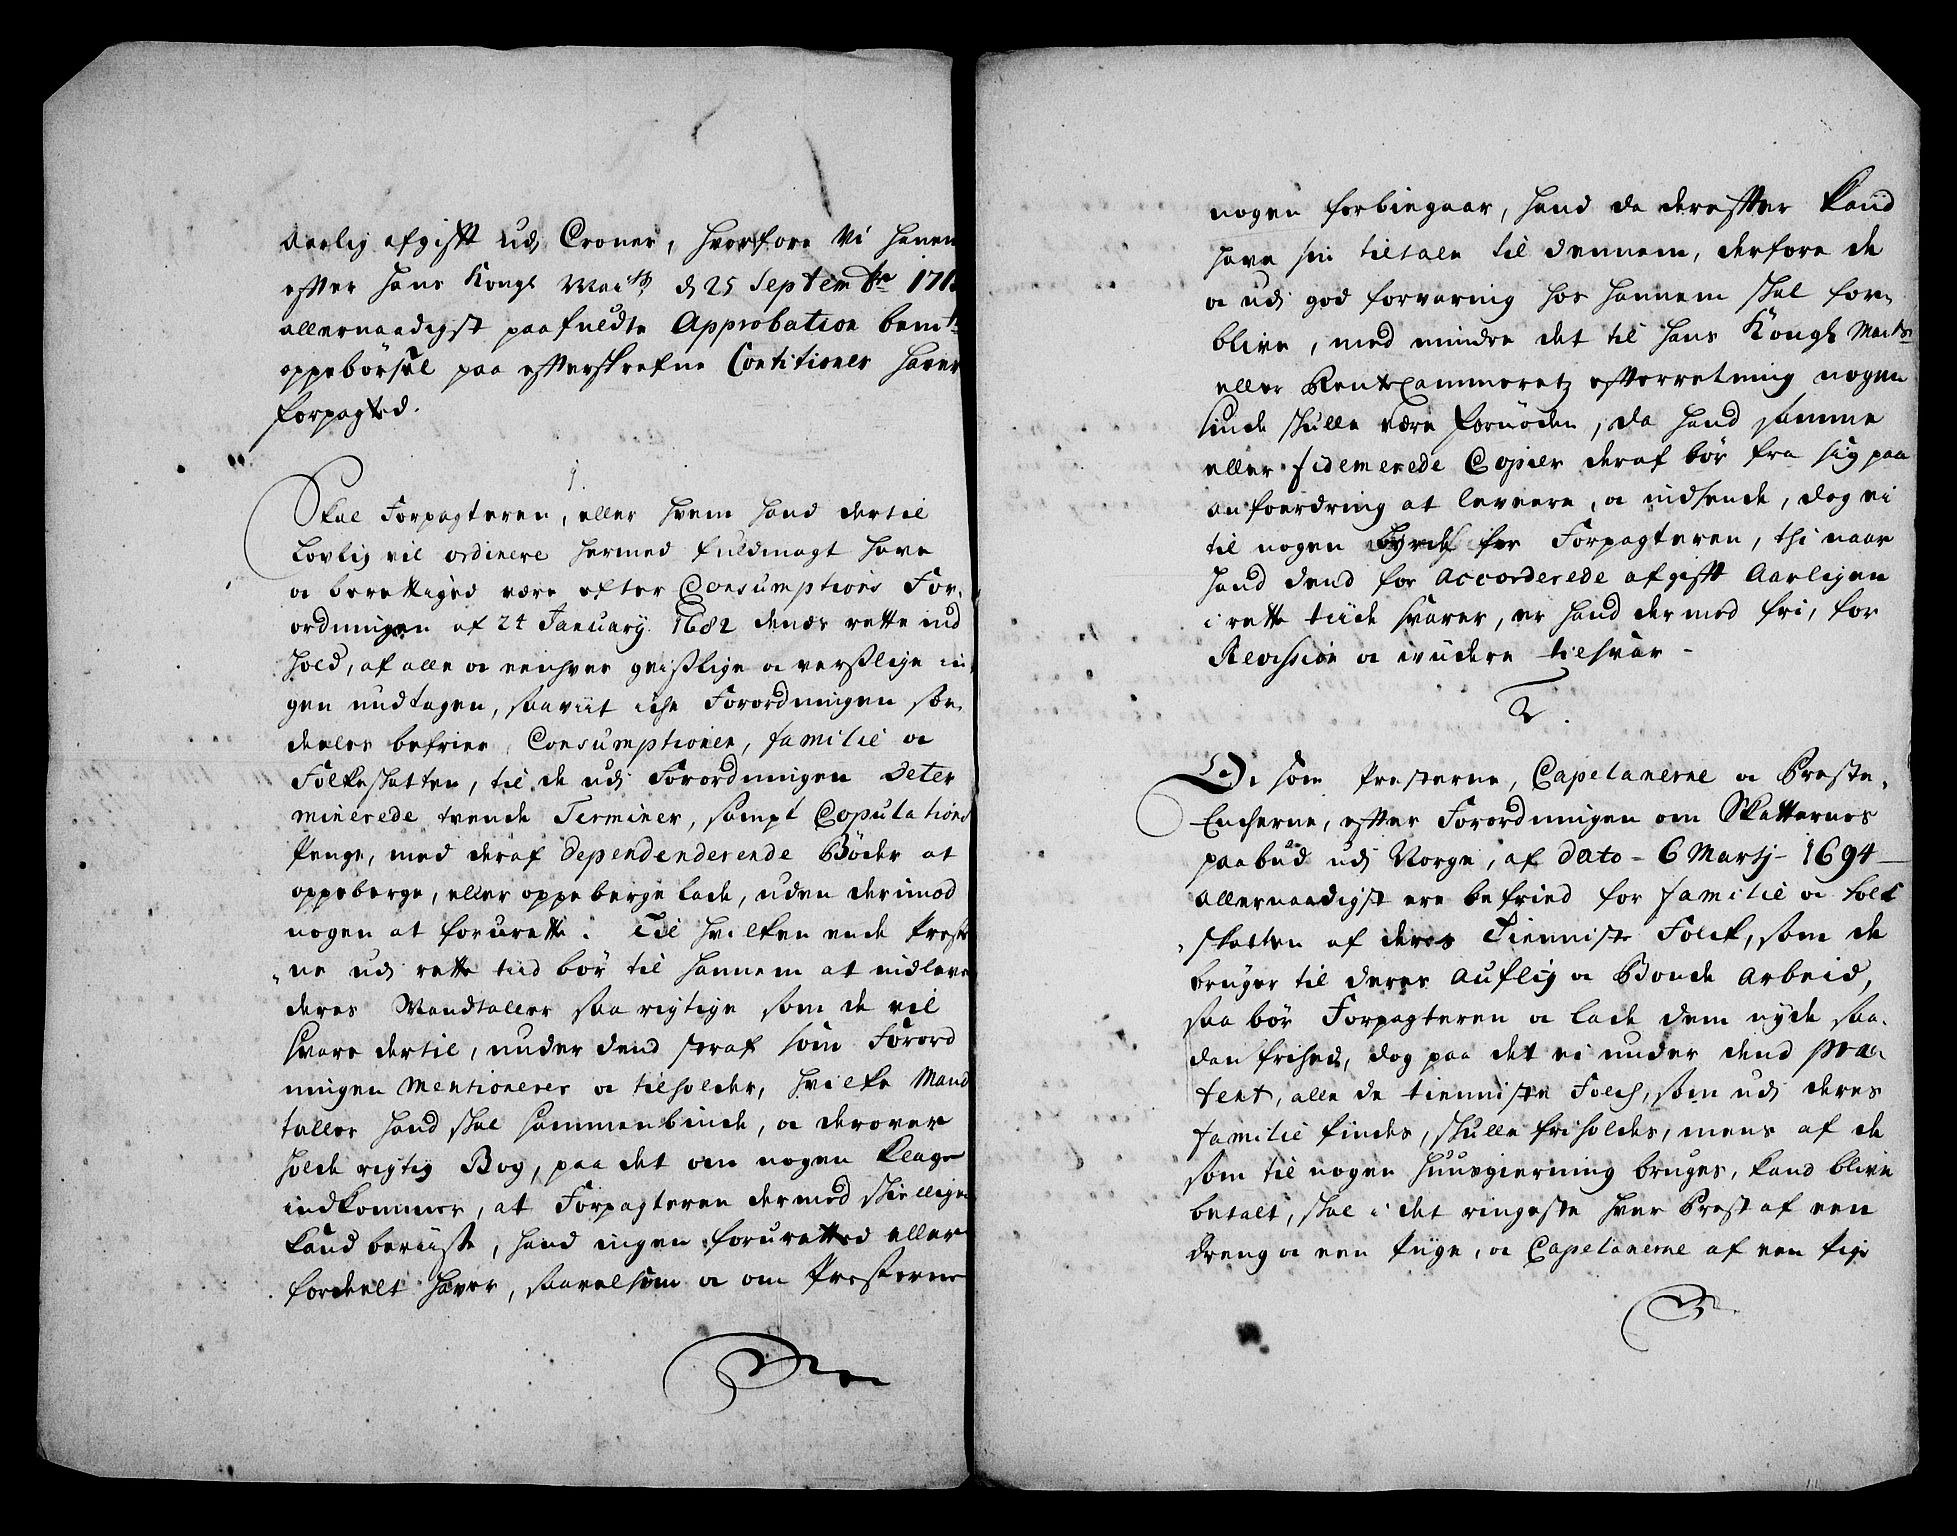 Aarlig afgifft udj Croner, hvorfore Vi hanem
efter hans Kongl Maits d 25 Septembr 171
allernaadigst paafuldte Approbation bemte
oppebørsel paa efterskrefne Contitioner haver
forpagted.
1.
Skal Forpagteren, eller hvem hand dertil
Lovlig vil ordinere hermed fuldmagt have
og berettiged være efter Consumptions For-
ordningen af 24 January 1682 denes rette ind
hold, af alle og eenhver geistlige og verslige in-
gen undtagen, saaviit iche Forordningen son-
deeles befrier, Consumptionen, familie og
Folkeskatten, til de udj Forordningen Deter
minerede trende Terminer, sampt Copulations
Penge, med deraf dependenderende Bøder at
oppeberge, eller oppeberge lade, uden derimod
nogen at forurette. Til hvilken ende Præster
ne udj rette tiid bør til hannem at indlevere
deres Mandtaller saa rigtige som de vil
svare dertil, under dend straf som Forord
ningen mentionerer og tilholder, hvilke Mand
taller hand skal sammenbinde, og derover
holde rigtig Bog, paa det om nogen Klage
indkommer, at Forpagteren dermed skiellige
kand beviise, hand ingen foruretted eller
fordeelt haver, saavelsom og om Præsterne
nogen forbiegaar, hand da derefter kand
have sin tiltale til dennem, derfore de
og udj god forvaring hos hannem skal for-
blive, med mindre det til hans Kongl Maits
eller RenteCammeretz efterretning nogen
sinde skulle være fornøden, da hand samme
eller fidemerede Copier deraf bør fra sig paa
anfoerdring at levere, og indsende, dog ei
til nogen Byrde for Forpagteren, thi naar
hand dend for Accorderede afgifft Aarligen
i rette tiide svarer, er hand dermed fri, for
Revision og widere tilsvar -
2.
Som Præsterne, Capelanerne og Præste-
Encherne, efter Forordningen om Skatternes
paabud udj Norge, af dato - 6 Martj - 1694 -
allernaadigst ere befried for familie og folk
skatten af deres Tienniste Folck, som de
bruger til deres Auflig og Bonde Arbeid,
saa bør Forpagteren og lade dem nyde saa-
dan frihed, dog paa det ei under dend præ-
text, alle de tienniste Folch, som udj deres
familie findes, skulle friholdes, mens af de
som til nogen Huusgierning bruges, kand blive
betalt, skal i det ringeste hver Præst af een
dreng og een Piige, og Capelanerne af een Pige